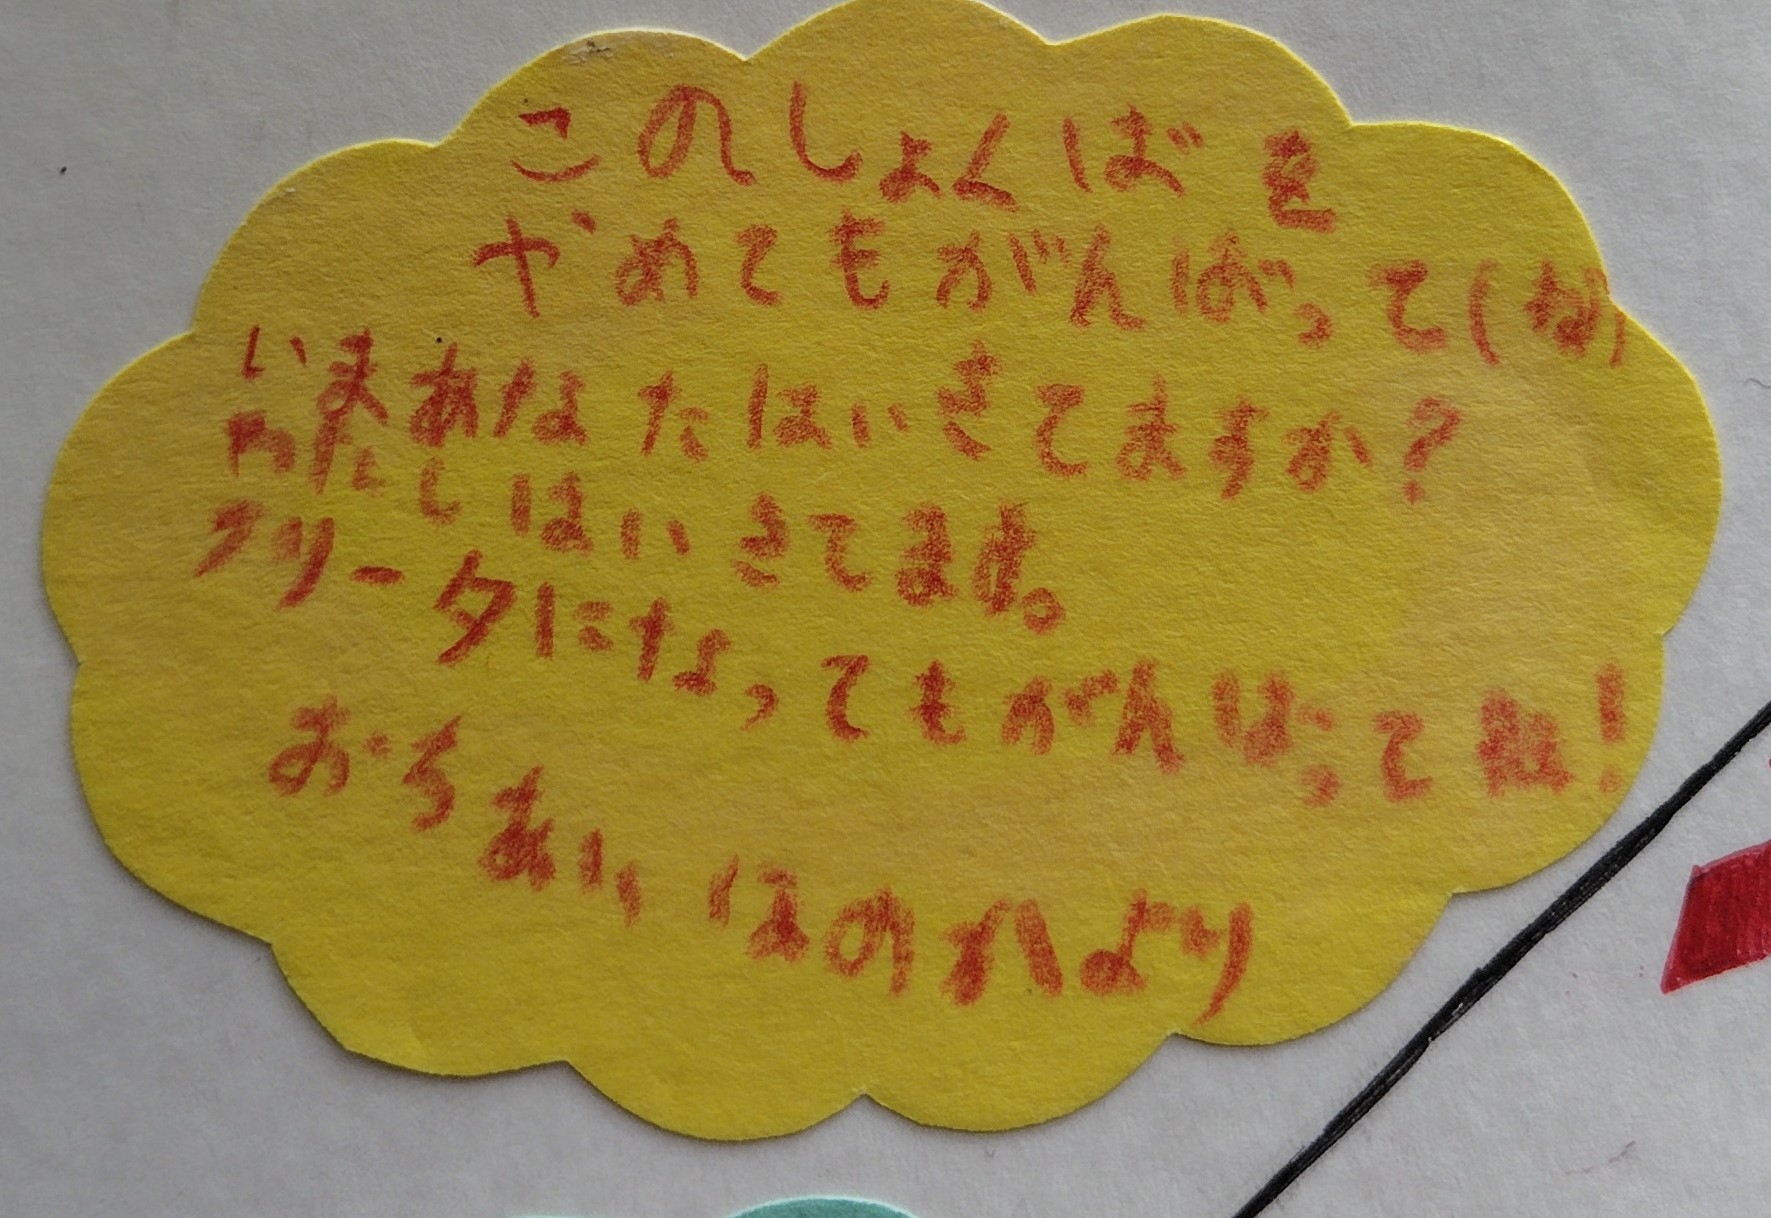 このしょくばを
やめてもがんばって(な)
いまあなたはいきてますか?
わたしはいきてます。
フリータになってもがんばってね!
おちあいほのかより